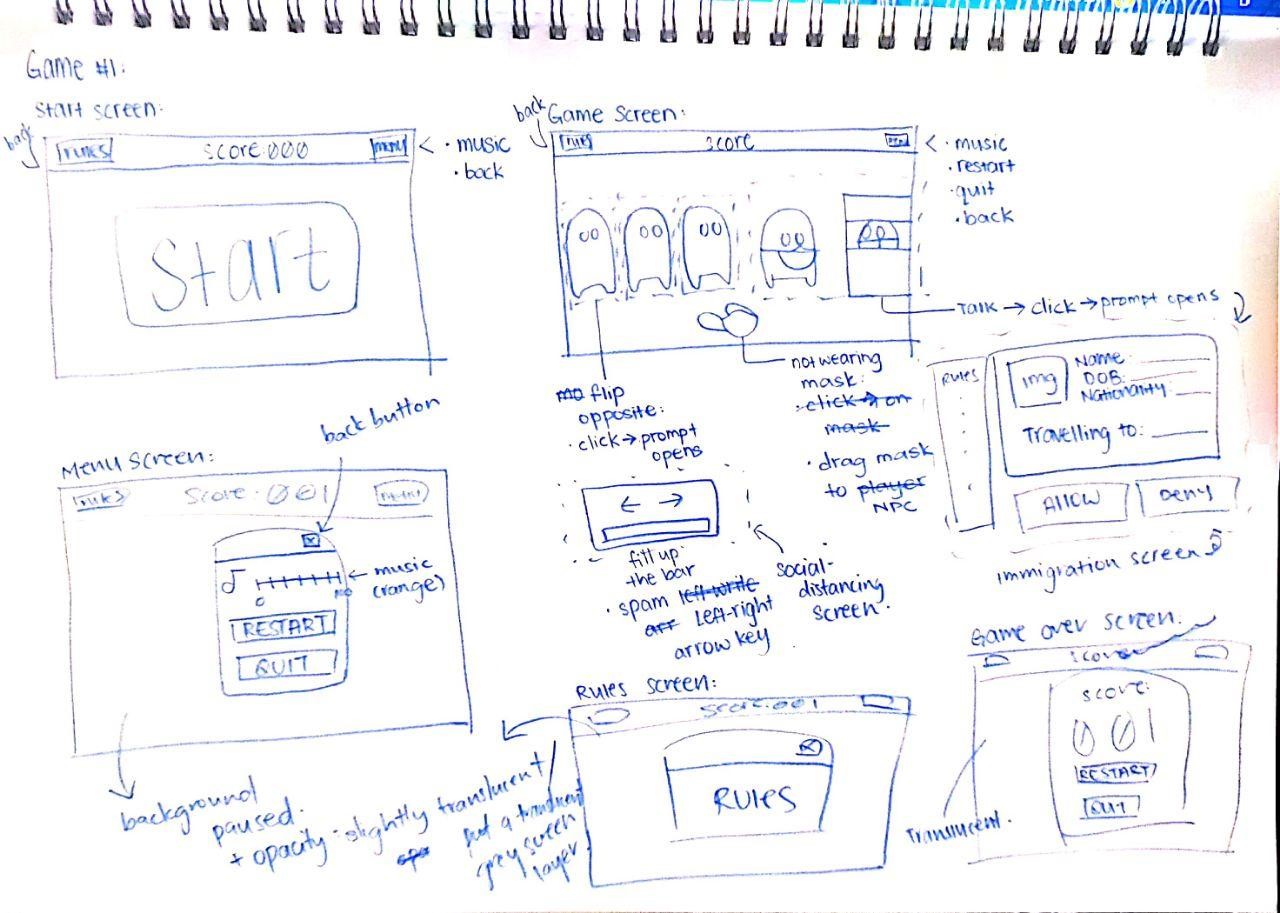 Game #1:
start screen:
back
rules
score:000
menu
< · music
· back
start
back
Game screen:
rules
score
menu
< · music
· restart
· quit
· back
Talk → click → prompt opens
not wearing
mask:
· click → on
mask
· drag mask
to player
NPC
no flip
opposite:
· click → prompt
opens
← →
fill up
the bar
· spam left-write
left-right
arrow key
social-
distancing
screen.
RULES
img
Name:
DOB:
Nationality:
Travelling to:
Allow
Deny
Immigration screen
Menu screen:
back button
rules
Score:001
menu
x
0
← music
(range)
RESTART
QUIT
background
paused.
+ opacity: slightly translucent/
put a translucent
grey screen
layer
Rules screen:
score:001
x
RULES
Game over screen:
score
score:
001
RESTART
QUIT
Translucent.